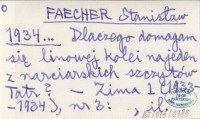 FAECHER Stanisław
1934... Dlaczego domagam
się linowej kolei na jeden
z narciarskich szczytów
Tatr? – Zima 1 (1933-
-1934), nr 3: , il.